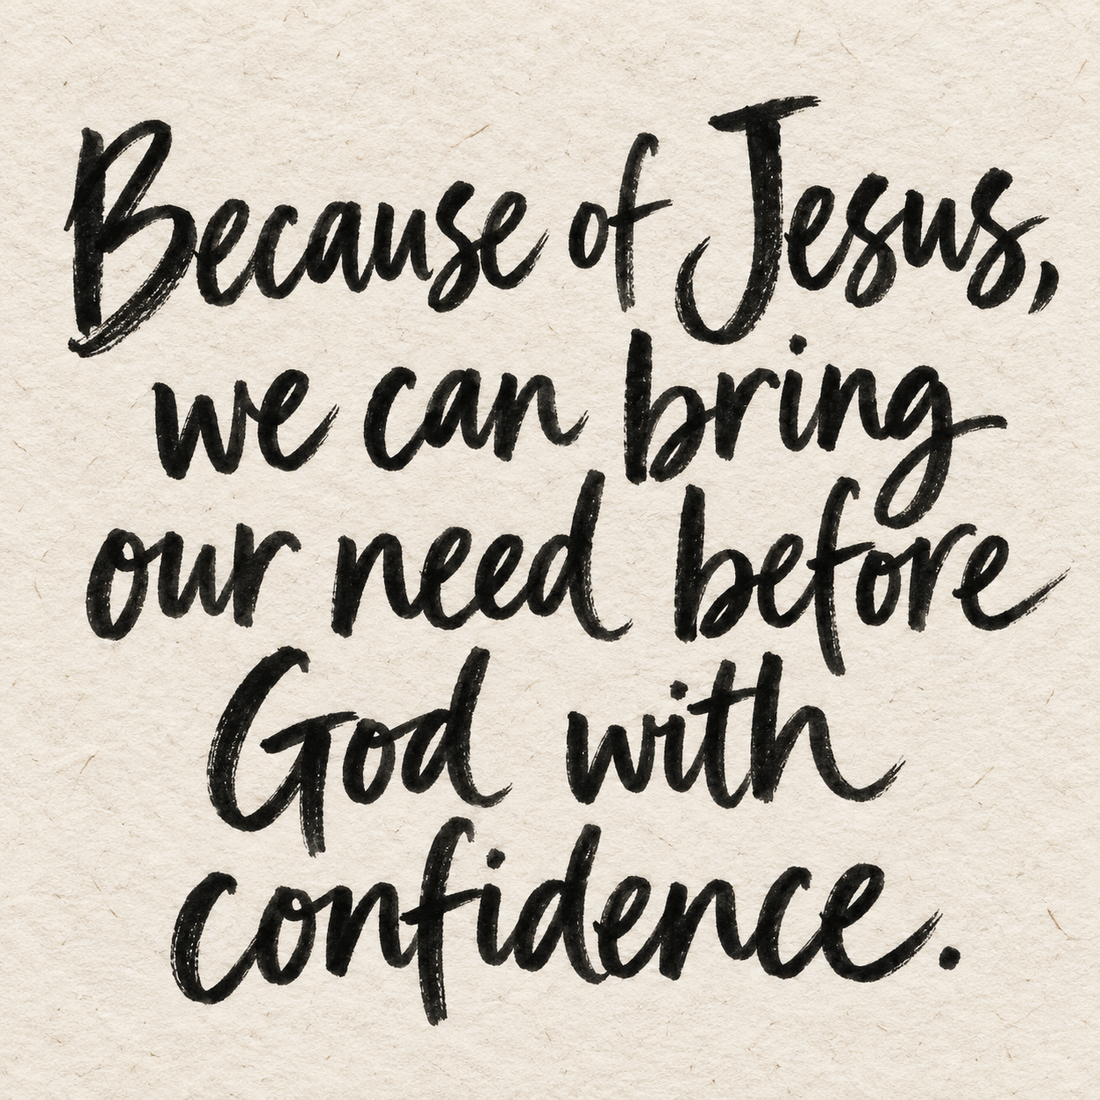 Because of Jesus,
we can bring
our need before
God with
confidence.